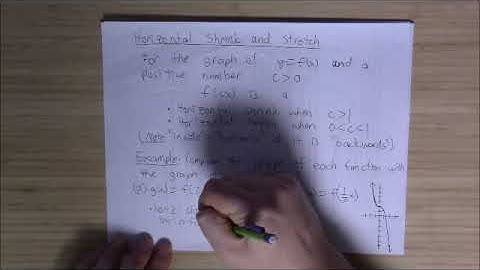 Horizontal Shrink and Stretch
For the graph of y=f(x) and a
positive number c>0
f(cx) is a
• Horizontal shrink when c>1
• Horizontal when 0<c<1
[Note: "inside" "backwards"]
Example: Compare the graph of each function with
the graph
(a) g(x)=f( =f(½x)